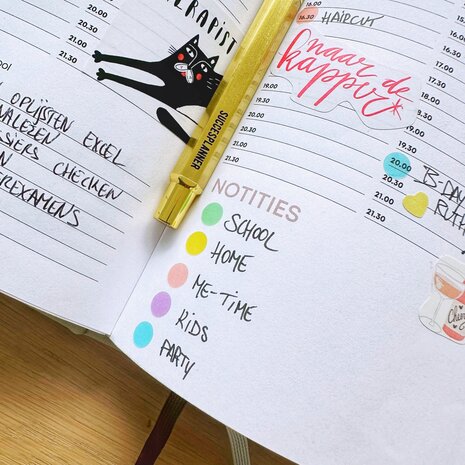 20.30
21.00
21.30
THERAPIST
OPLIJSTEN EXCEL
NALEZEN
SSIERS CHECKEN
EREXAMENS
SUCCESPLANNER
16.30 HAIRCUT
naar de
kapper
19.00
19.30
20.00
20.30
21.00
21.30
16.30
17.00
17.30
18.00
18.30
19.00
19.30
20.00
20.30
21.00
21.30
B-DA
RUTH
Cheers
NOTITIES
SCHOOL
HOME
ME-TIME
KIDS
PARTY